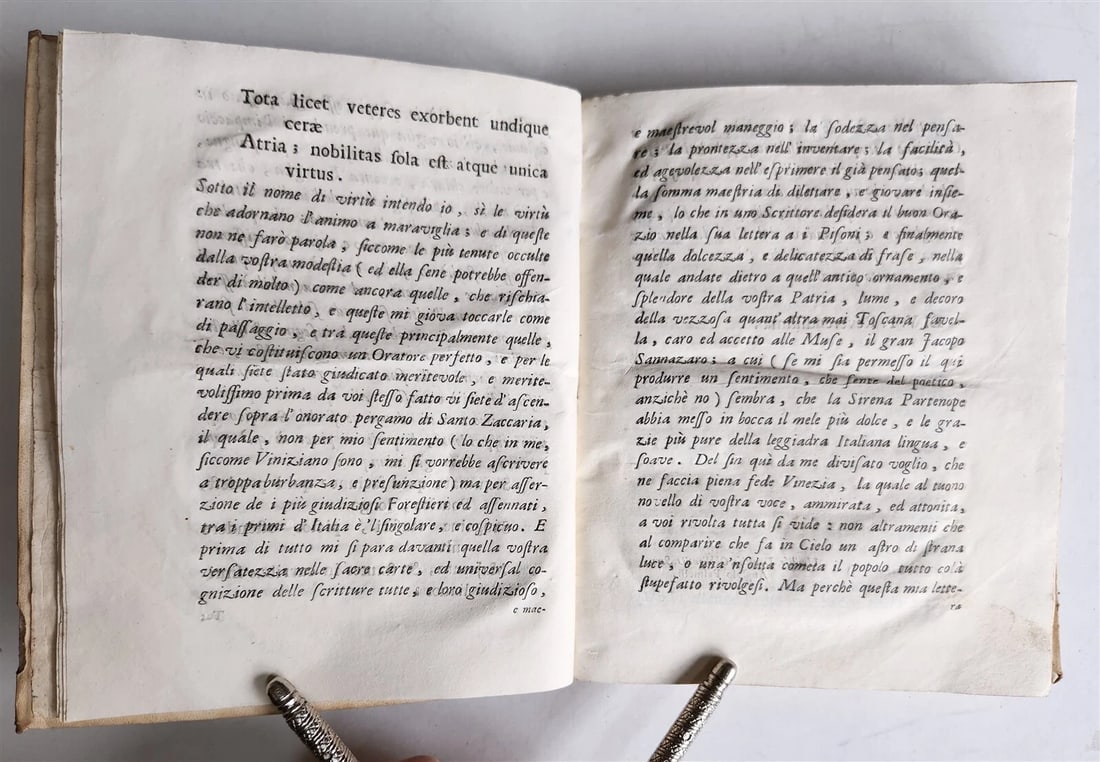 Tota licet veteres exorbent undique
ceræ
Atria; nobilitas sola est atque unica
virtus.
Sotto il nome di virtù intendo io, sì le virtù
che adornano l'animo a maraviglia; e di queste
non ne farò parola, siccome le più tenute occulte
dalla vostra modestia (ed ella sene potrebbe offen-
der di molto) come ancora quelle, che rischia-
rano l'intelletto, e queste mi giova toccarle come
di passaggio, e trà queste principalmente quelle,
che vi costituiscono un Oratore perfetto, e per le
quali siete stato giudicato meritevole, e merite-
volissimo prima da voi stesso fatto vi siete d'ascen-
dere sopra l'onorato pergamo di Santo Zaccaria,
il quále, non per mio sentimento (lo che in me,
siccome Viniziano sono, mi si vorrebbe ascrivere
a troppa burbanza, e presunzione) ma per asser-
zione de i più giudiziosi Forestieri ed assennati,
tra i primi d'Italia è 'l singolare, e cospicuo. E
prima di tutto mi si para davanti quella vostra
versatezza nelle sacre carte, ed universal co-
gnizione delle scritture tutte, e loro giudizioso,
e mae-
e maestrevol maneggio; la sodezza nel pensa-
re; la prontezza nell'inventare; la facilità,
ed agevolezza nell'esprimere il già pensato; quel-
la somma maestria di dilettare, e giovare insie-
me, lo che in uno Scrittore desidera il buon Ora-
zio nella sua lettera a i Pisoni; e finalmente
quella dolcezza, e delicatezza di frase, nella
quale andate dietro a quell'antico ornamento, e
splendore della vostra Patria, lume, e decoro
della vezzosa quant'altra mai Toscana favel-
la, caro ed accetto alle Muse, il gran Jacopo
Sannazaro; a cui (se mi sia permesso il quì
produrre un sentimento, che sente del poetico,
anzichè no) sembra, che la Sirena Partenope
abbia messo in bocca il mele più dolce, e le gra-
zie più pure della leggiadra Italiana lingua, e
soave. Del sin quì da me divisato voglio, che
ne faccia piena fede Vinezia, la quale al tuono
novello di vostra voce, ammirata, ed attonita,
a voi rivolta tutta si vide: non altramenti che
al comparire che fa in Cielo un astro di strana
luce, o una 'nsolita cometa il popolo tutto colà
stupefatto rivolgesi. Ma perchè questa mia lette-
ra